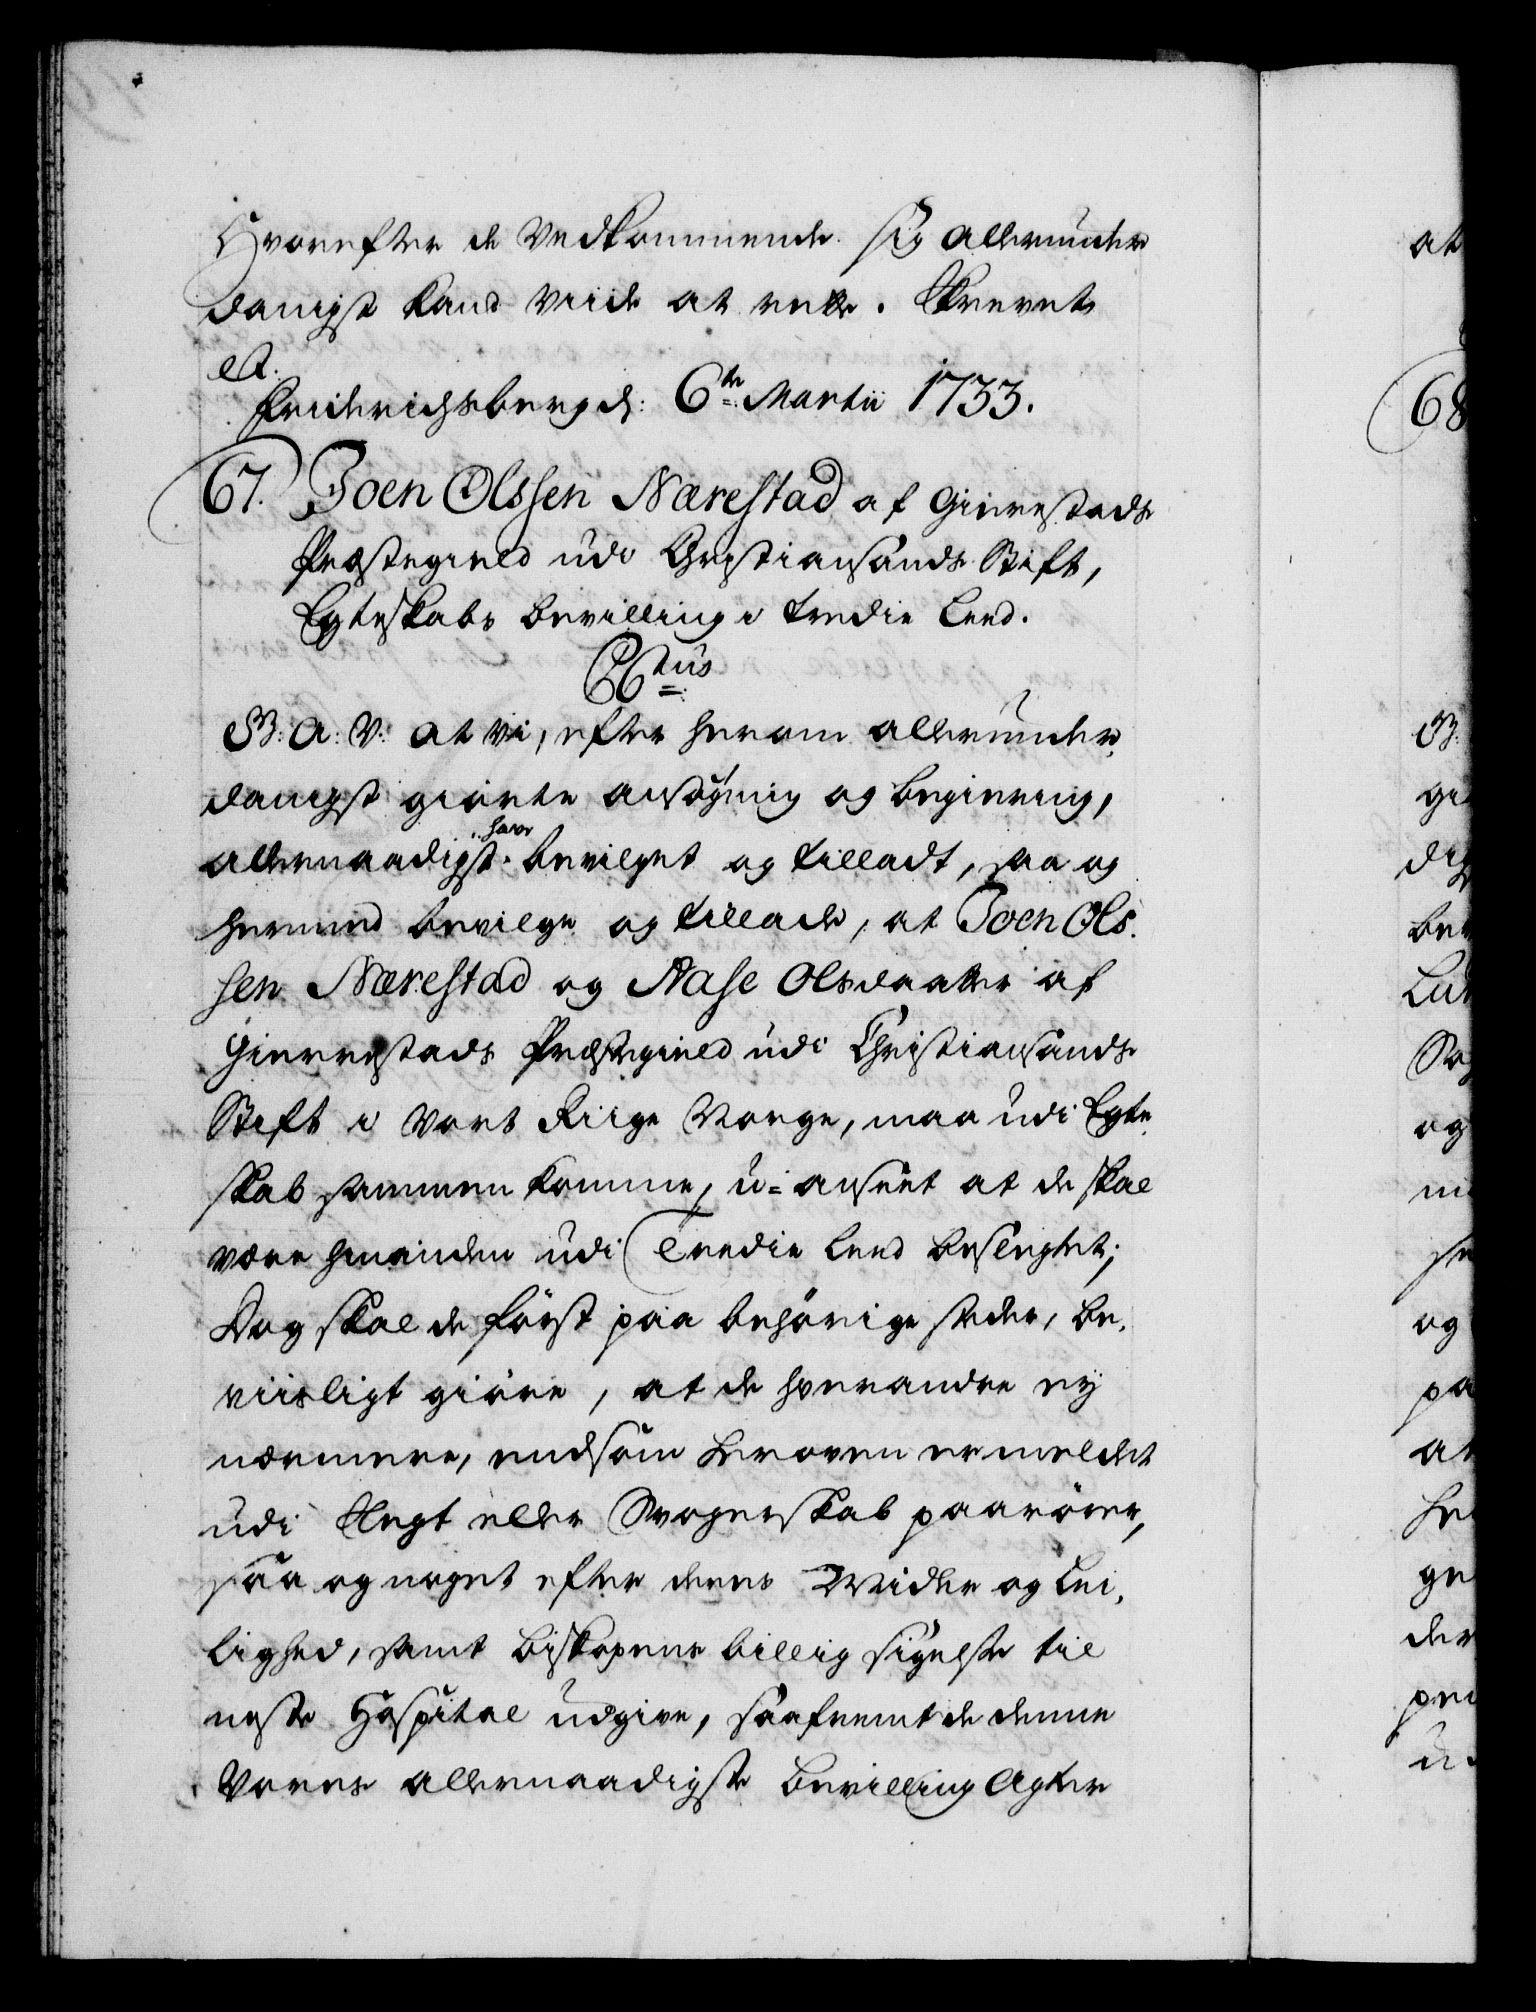 Hvorefter de Vedkommende sig allerunder
danigst kand viide at rette. Skrevet
etc.
Friderichsberg d: 6te Martii 1733.
67. Joen Olssen Nærestad af Gierrestads
Præstegield udi Christiansands Stift,
Egteskabs bevilling i tredie Leed.
C6tus
G: A: V: at vi, efter herom allerunder,
danigst giorte ansøgning og begiering,
allernaadigst have bevilget og tilladt, saa og
hermed bevilge og tillade, at Joen Ols,
sen Nærestad og Aase Olsdaatter af
Gierrestads Præstegield udi Christiansands
Stift i vort Riige Norge, maa udi Egte,
skab sammen komme, u-anseet at de skal
være hinanden udi Tredie Leed beslegtet;
Dog skal de først paa behørige steder, be,
viisligt giøre, at de hverandre ey
nærmere, end som Heroven er meldet
udi Slegt eller Svogerskab paarører,
saa og noget efter deres Midler og Lei,
lighed, samt biskopens billig sigelse til
neste Hospital udgive, saafremt de denne
Vores allernaadigste bevilling agter
at
68
G:
gi
dig
be
Lu
So
og
m
se
og
pa
at
he
ge
der
pei
u